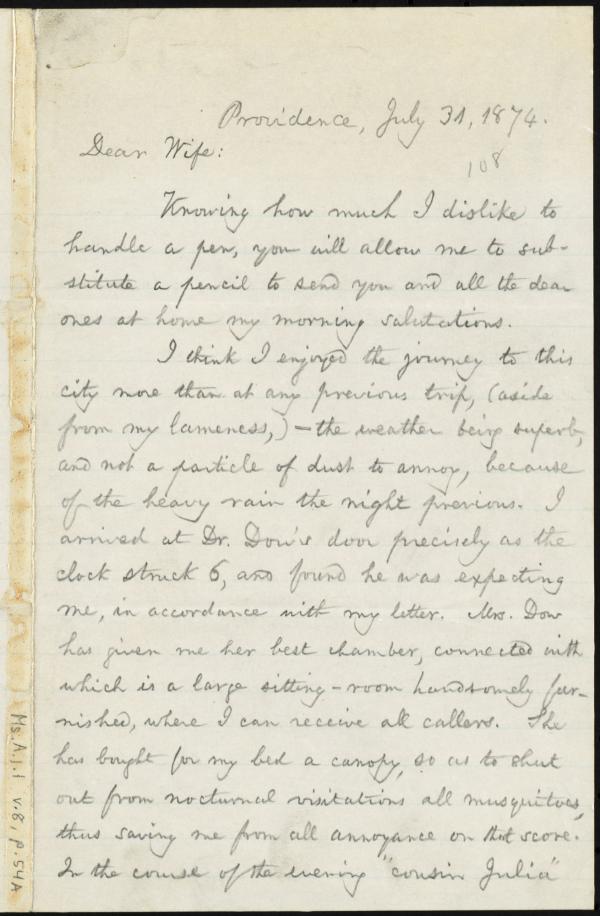 Providence, July 31, 1874.
Dear Wife:
108
Knowing how much I dislike to
handle a pen, you will allow me to sub-
stitute a pencil to send you and all the dear
ones at home my morning salutations.
I think I enjoyed the journey to this
city more than at any previous trip, (aside
from my lameness,) — the weather being superb,
and not a particle of dust to annoy, because
of the heavy rain the night previous. I
arrived at Dr. Dow's door precisely as the
clock struck 6, and found he was expecting
me, in accordance with my letter. Mrs. Dow
has given me her best chamber, connected with
which is a large sitting-room handsomely fur-
nished, where I can receive all callers. She
has bought for my bed a canopy, so as to shut
out from nocturnal visitations all musquitoes,
thus saving me from all annoyance on that score.
In the course of the evening "cousin Julia"
Ms.A.1.1 v.8, p.54A